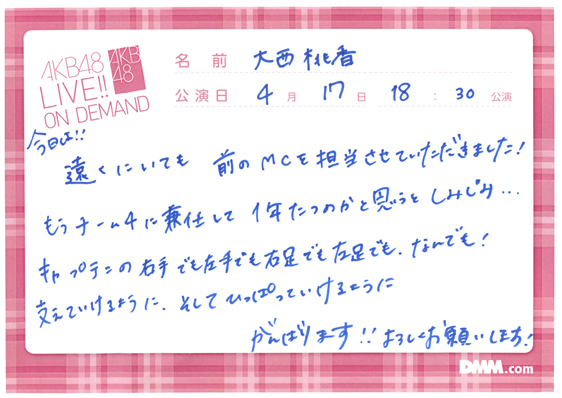 AKB48
LIVE!!
ON DEMAND
AKB
48
名前 大西桃香
公演日 4月17日 18:30公演
今日は!!
遠くにいても 前のMCを担当させていただきました!
もうチーム4に兼任して 1年たつのかと思うとしみじみ...
キャプテンの右手でも左手でも右足でも左足でも、なんでも!
支えていけるように、そしてひっぱっていけるように
がんばります!!よろしくお願いします!
DMM.com